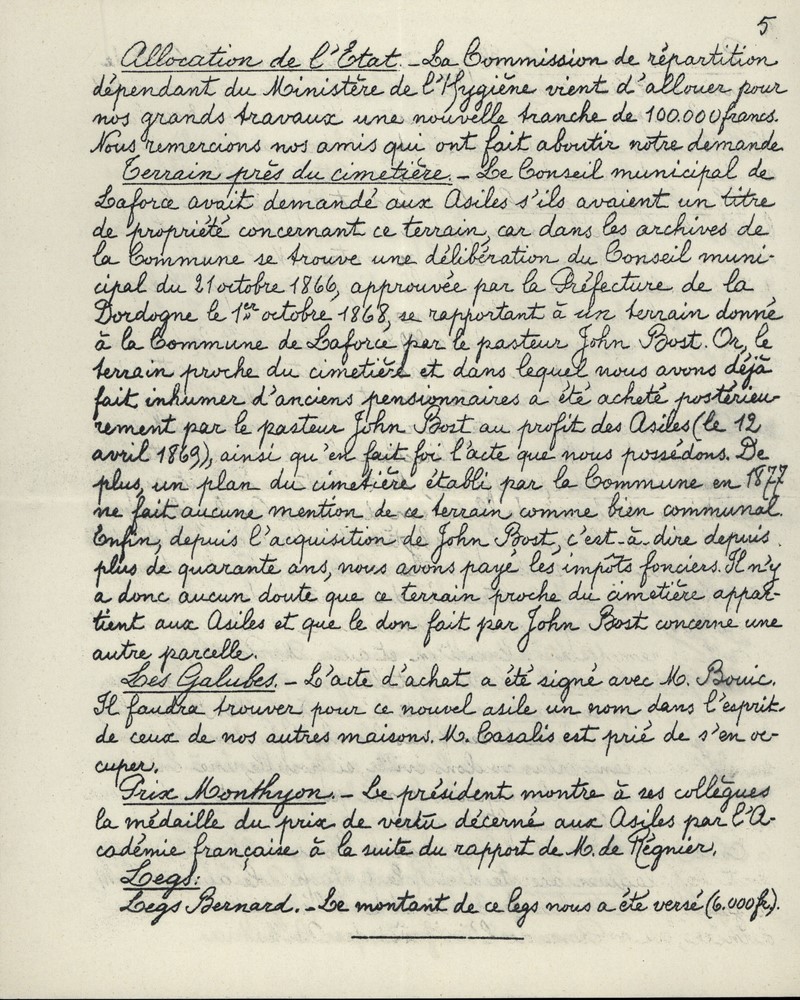 5
Allocation de l'Etat. - La Commission de répartition
dépendant du Ministère de l'Hygiène vient d'allouer pour
nos grands travaux une nouvelle tranche de 100.000 francs.
Nous remercions nos amis qui ont fait aboutir notre demande.
Terrain près du cimetière. - Le Conseil municipal de
Laforce avait demandé aux Asiles s'ils avaient un titre
de propriété concernant ce terrain, car dans les archives de
la Commune se trouve une délibération du Conseil muni-
cipal du 21 octobre 1866, approuvée par la Préfecture de la
Dordogne le 1er octobre 1868, se rapportant à un terrain donné
à la Commune de Laforce par le pasteur John Bost. Or, le
terrain proche du cimetière et dans lequel nous avons déjà
fait inhumer d'anciens pensionnaires a été acheté postérieu-
rement par le pasteur John Bost au profit des Asiles (le 12
avril 1869), ainsi qu'en fait foi l'acte que nous possédons. De
plus, un plan du cimetière établi par la Commune en 1877
ne fait aucune mention de ce terrain comme bien communal.
Enfin, depuis l'acquisition de John Bost, c'est-à-dire depuis
plus de quarante ans, nous avons payé les impôts fonciers. Il n'y
a donc aucun doute que ce terrain proche du cimetière appar-
tient aux Asiles et que le don fait par John Bost concerne une
autre parcelle.
Les Galubes. - L'acte d'achat a été signé avec M. Bouic.
Il faudra trouver pour ce nouvel asile un nom dans l'esprit
de ceux de nos autres maisons. M. Casalis est prié de s'en oc-
cuper.
Prix Monthyon. - Le président montre à ses collègues
la médaille du prix de vertu décerné aux Asiles par l'A-
cadémie française à la suite du rapport de M. de Régnier.
Legs:
Legs Bernard. - Le montant de ce legs nous a été versé (6.000 fr).